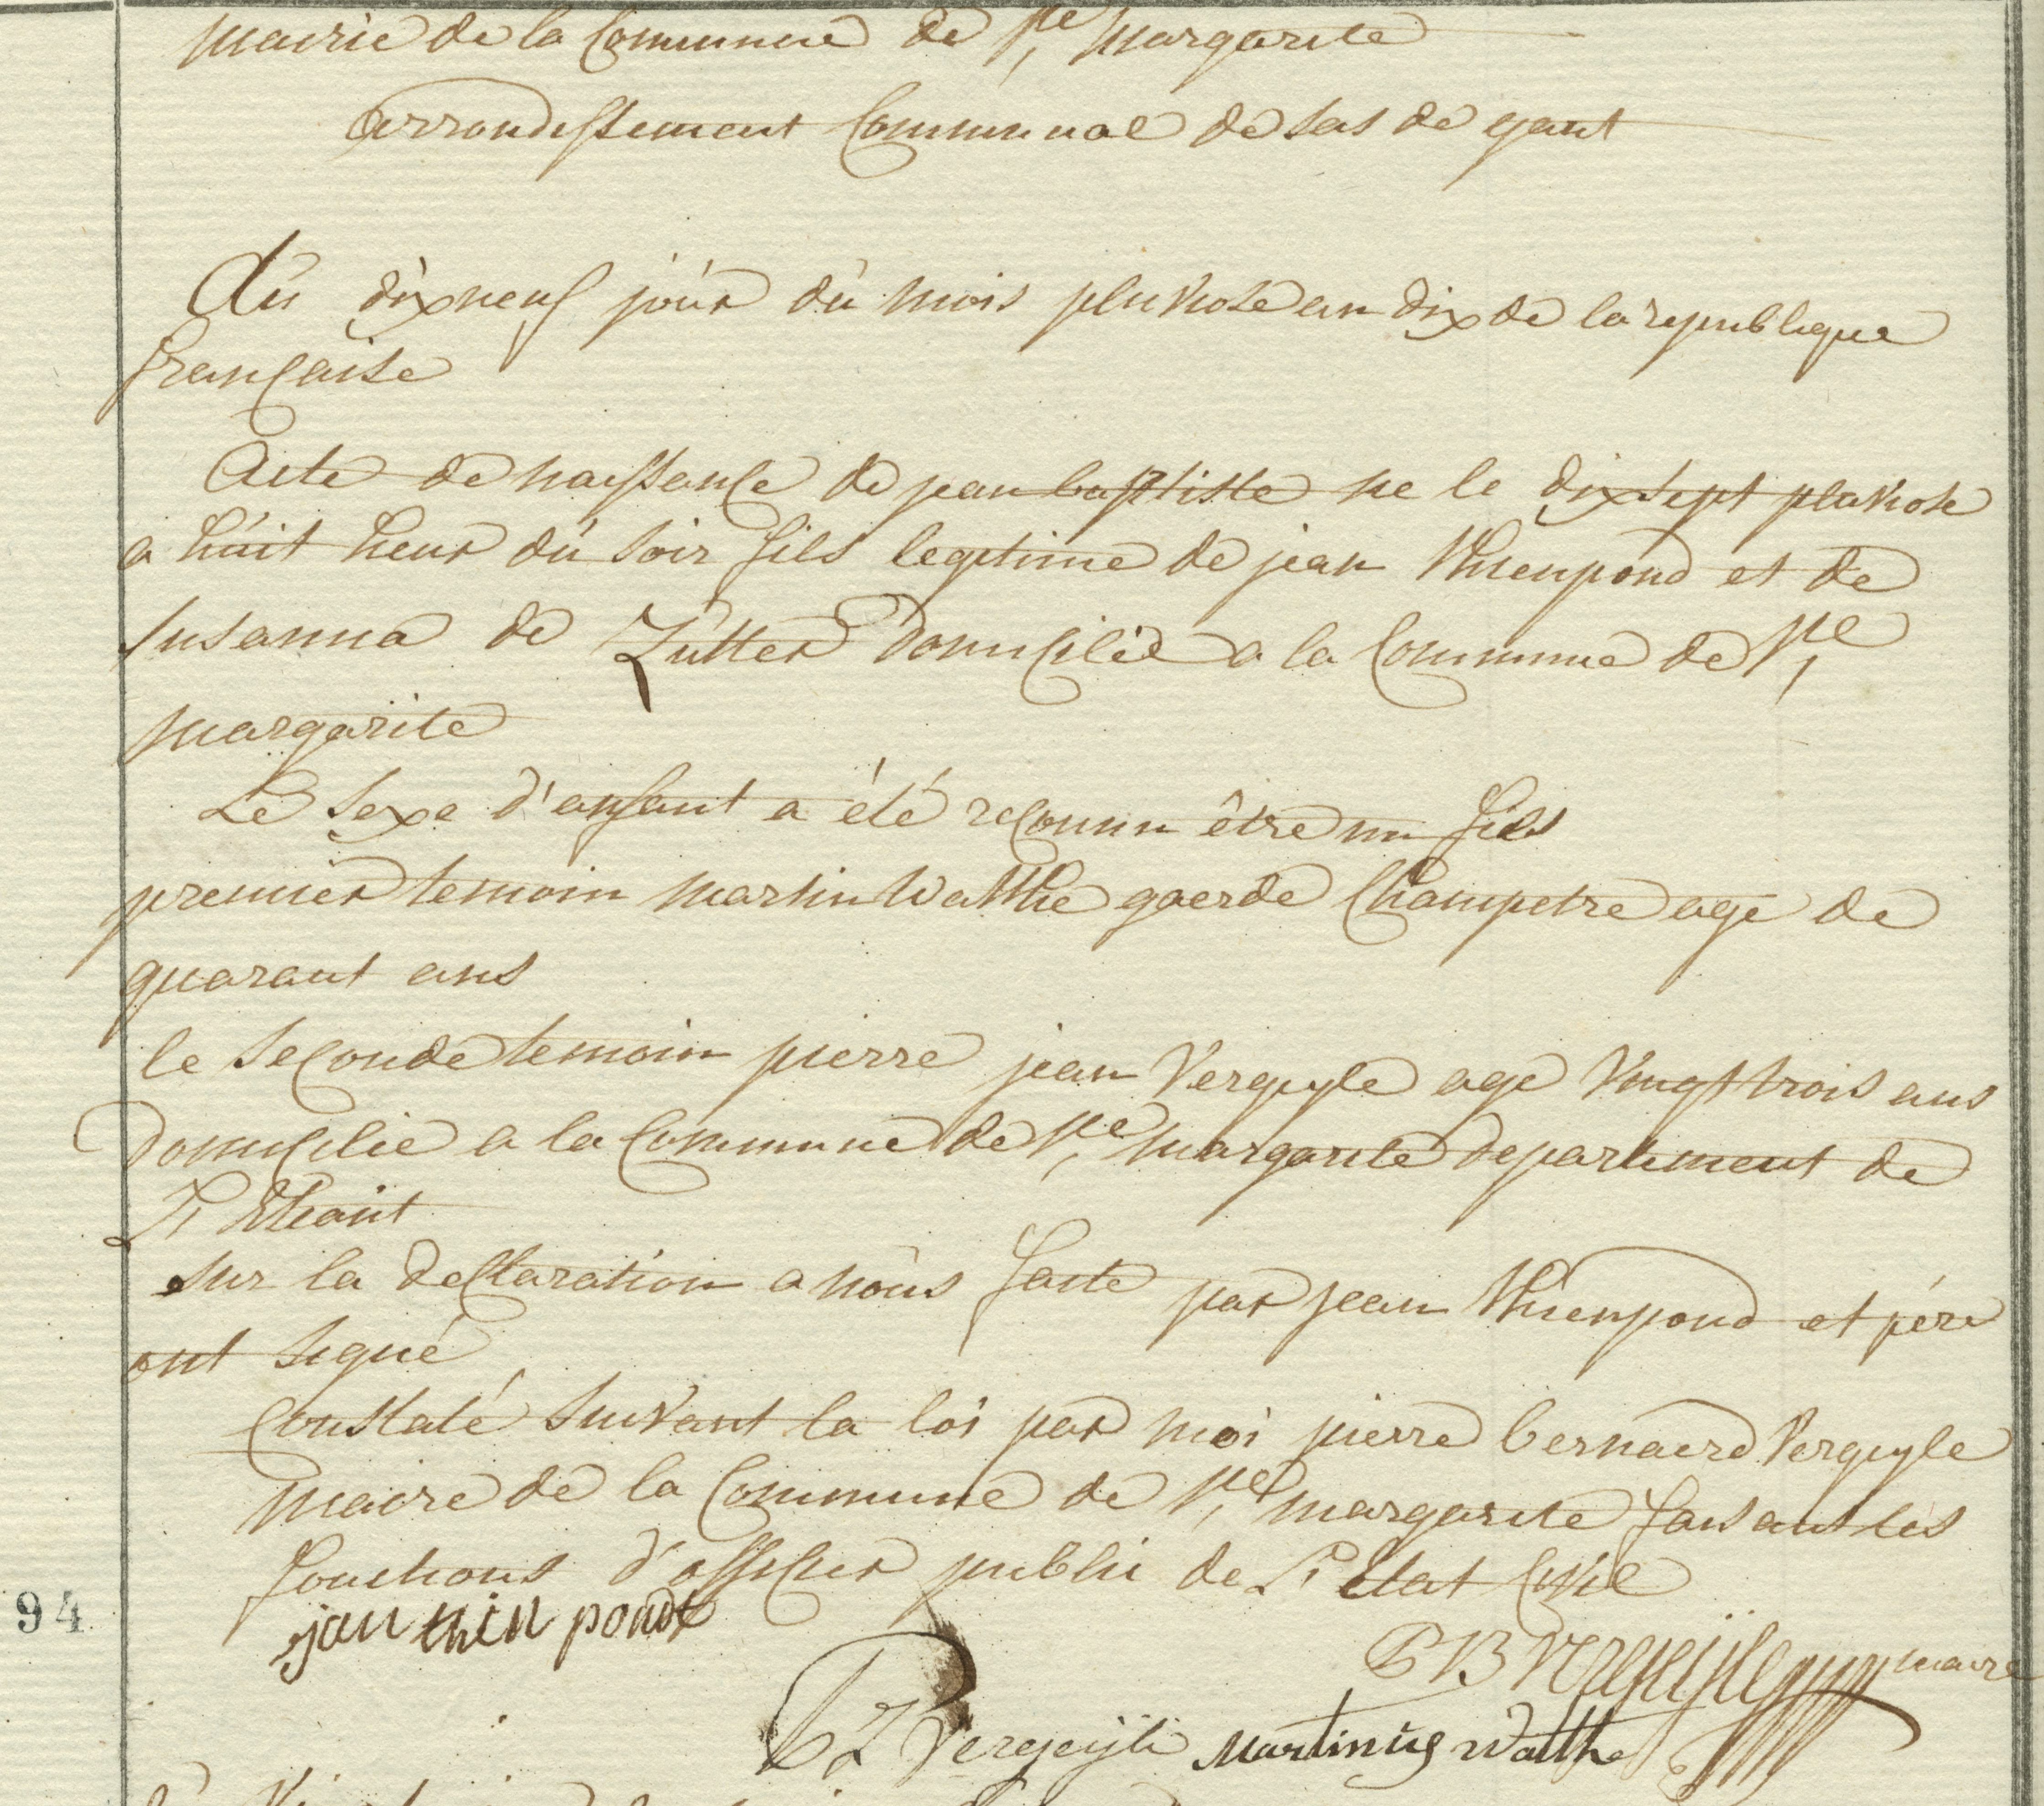 mairie de la Commune de Ste margarite
arrondissement Communal de sas de gant
Du dix neuf jour du mois pluviose an dix de la republique
française
Acte de naissance de jean baptiste ne le dix sept pluviose
a huit heur du soir fils legitime de jean thienpond et de
susanna de Zutter domicilié a la Commune de Ste
margarite
Le sexe d'enfant a été reconnu être un fils
premier temoin martin Watthé gaerde Champetre age de
quarant ans
le seconde temoin pierre jean Vergeyle age vingt trois ans
domicilie a la Commune de Ste margarite departement de
L'Escaut
sur la declaration a nous faite par jean thienpond et père
ont signé
Constaté suivant la loi par moi pierre bernaerd Vergeyle
maire de la Commune de Ste margarite faisant les
fonctions d'officier public de L'etat Civil
94
jan thin pondt
P B Vergeÿle maire
P J Vergeÿle martinus Watthe